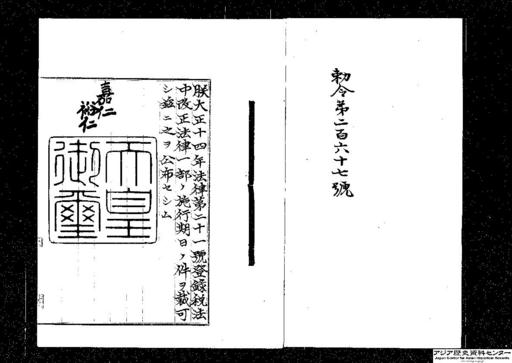 勅令第二百六十七號
朕大正十四年法律第二十一號登錄税法
中改正法律一部ノ施行期日ノ件ヲ裁可
シ茲ニ之ヲ公布セシム
嘉仁
裕仁
天皇
御璽
アジア歴史資料センター
Japan Center for Asian Historical Records